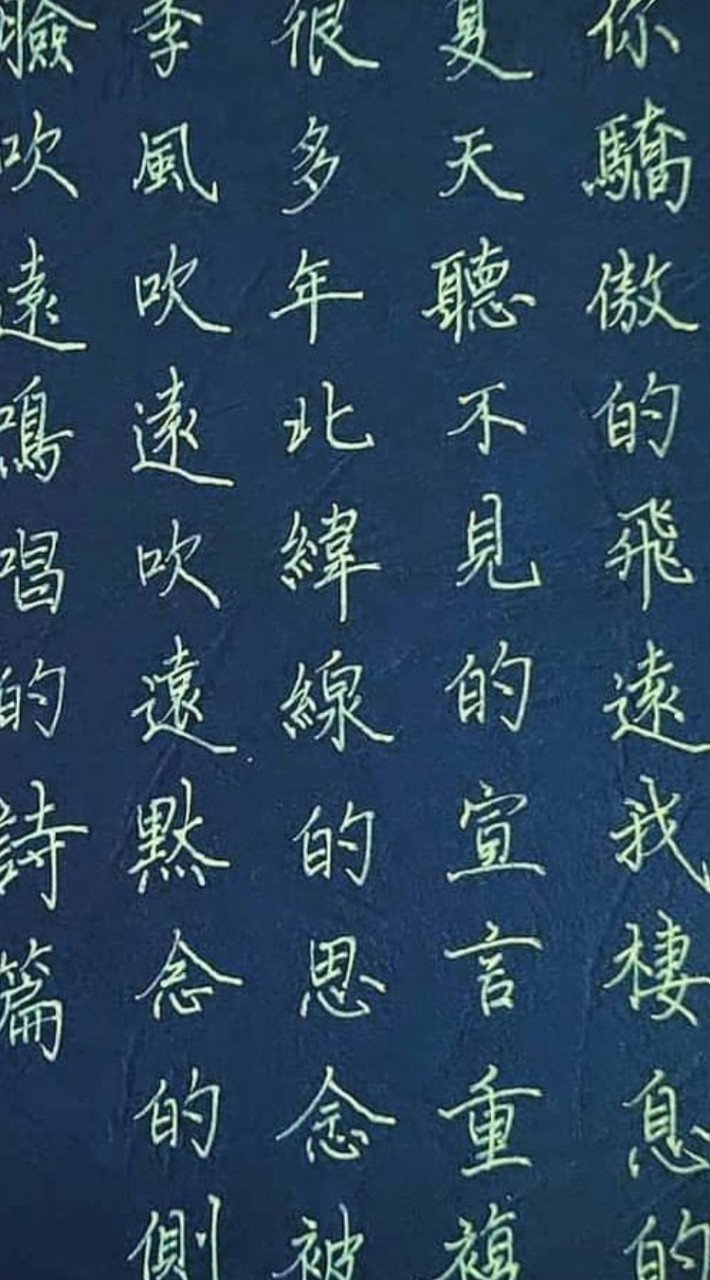 你驕傲的飛遠我棲息的
夏天聽不見的宣言重複
很多年北緯線的思念被
季風吹遠吹遠默念的側
臉吹遠鳴唱的詩篇